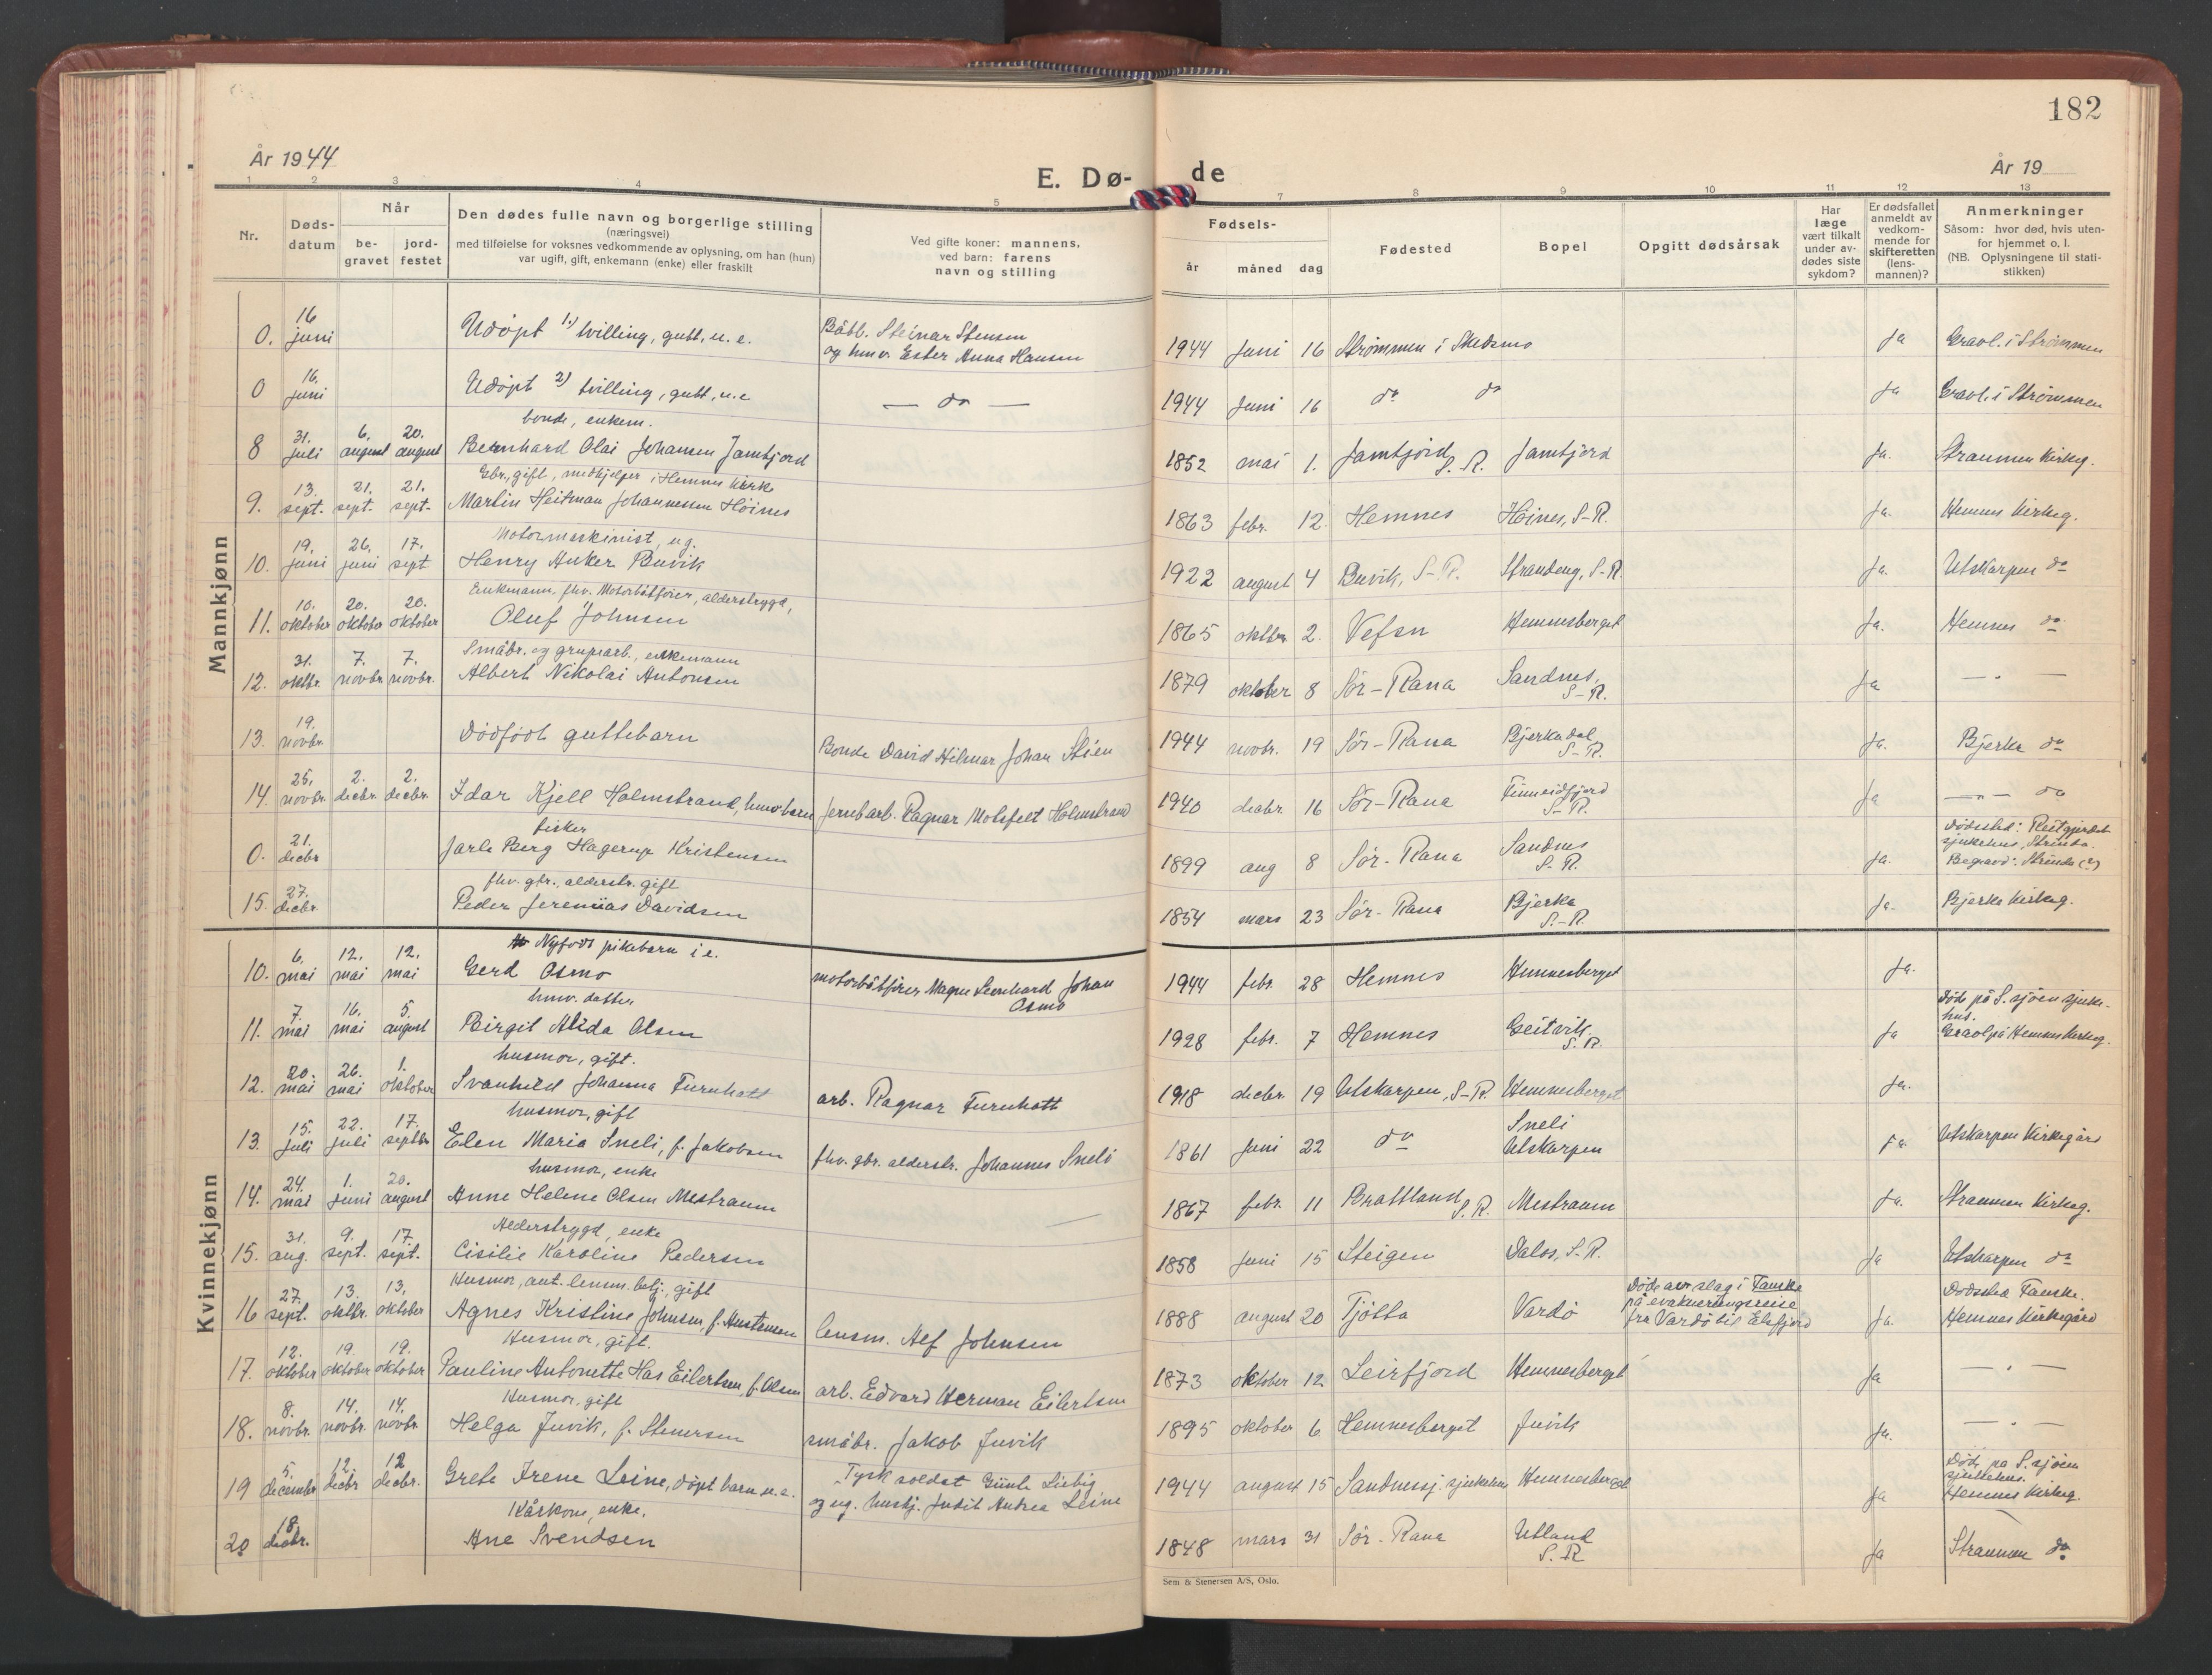 182
År 1944
E. Dø-
de
År 19
1 2 3 4 5 7 8 9 10 11 12 13
Nr.
Døds-
datum
Når
be-
gravet
jord-
festet
Den dødes fulle navn og borgerlige stilling
(næringsvei)
med tilføielse for voksnes vedkommende av oplysning, om han (hun)
var ugift, gift, enkemann (enke) eller fraskilt
Ved gifte koner: mannens,
ved barn: farens
navn og stilling
Fødsels-
år måned dag
Fødested
Bopel
Opgitt dødsårsak
Har
læge
vært tilkalt
under av-
dødes siste
sykdom?
Er dødsfallet
anmeldt av
vedkom-
mende for
skifteretten
(lens-
mannen)?
Anmerkninger
Såsom: hvor død, hvis uten-
for hjemmet o. l.
(NB. Oplysningene til stati-
stikken)
Mannkjønn
0. 16 juni Udøpt 1) tvilling, gutt, u. e. Båtb. Steinar Stensen
og hmv. Ester Anna Hansen 1944 juni 16 Strømmen i Skedsmo ja Gravl. i Strømmen
0 16. juni Udøpt 2) tvilling, gutt, u. e — do — 1944 juni 16 do do ja Gravl. i Strømmen
bonde, enkem.
8 31. juli 6. august 20. august Bernhard Olai Johansen Jamtjord 1852 mai 1. Jamtjord S. R. Jamtjord ja. Straumen Kirkeg.
Gbr., gift, medhjelper i Hemnes Kirke
9. 13. sept. 21. sept. 21. sept. Martin Heitman Johannessen Höines 1863 febr. 12. Hemnes Höines, S-R. ja. Hemnes Kirkeg.
Motormaskinist, ug.
10. 19. juni 26. juni 17. sept Henry Anker Buvik 1922 august 4 Buvik, S-R. Strandeng, S-R. ja. Utskarpen do
Enkemann, fhv. Motorbåtförer, alderstrygd,
11. 10. oktober 20. oktober 20. oktober Oluf Johnsen 1865 oktbr. 2. Vefsn Hemnesberget ja. Hemnes do
Småbr. og gruvearb., enkemann
12. 31. oktbr. 7. novbr. 7. novbr. Albert Nikolai Antonsen 1879 oktober 8 Sör-Rana Sandnes, S-R. ja — " —
13. 19. novbr. Dödfödt guttebarn Bonde David Hilmar Johan Stien 1944 novbr. 19 Sör-Rana Bjerkadal S-R. ja. Bjerka do
14. 25. novbr. 2. decbr. 2. decbr. Idar Kjell Holmstrand, hmv. barn Jernb. arb. Ragnar Motzfelt Holmstrand 1940 decbr. 16 Sör-Rana Finneidfjord S-R. ja — " — do
fisker
0. 21. decbr Jarle Berg Hagerup Kristensen 1899 aug 8 Sör-Rana Sandnes S. R. ja. Dödssted: Reitgjerdet
sjukehus, Strinda.
Begravd: Strinda (?)
fhv. gbr., alderstr. gift
15. 27. decbr. Peder Jeremias Davidsen 1854 mars 23 Sör-Rana Bjerka S.-R. ja. Bjerka Kirkeg.
Kvinnekjønn
Nyfödt pikebarn i e.
10. 6. mai 12. mai 12. mai Gerd Osmo motorbåtförer Magne Leonhard Johan
Osmo 1944 febr. 28 Hemnes Hemnesberget ja.
hmv. datter
11. 7. mai 16. mai 5. august Birgit Alida Olsen 1928 febr. 7 Hemnes Geitvik S. R. ja Död på S. sjöen sjuke-
hus.
Gravl på Hemnes Kirkeg.
husmor, gift.
12. 20. mai 26. mai 1. oktober Svanhild Johanna Furuhatt arb. Ragnar Furuhatt 1918 decbr. 19 Utskarpen, S-R. Hemnesberget ja.
husmor, gift
13. 15. juli 22. juli 17. septbr Elen Maria Sneli, f. Jakobsen fhv. gbr. alderstr. Johannes Sneli 1861 juni 22 do Sneli
Utskarpen ja. Utskarpen Kirkegård
husmor, enke
14. 24. mai 1. juni 20. august Anne Helene Olsen Mestraum 1867 febr. 11 Brattland S. R. Mestraum ja. Straumen Kirkeg.
Alderstrygd, enke
15. 31. aug. 9. sept. 17. sept. Cisilie Karoline Pedersen 1858 juni 15 Steigen Dalos, S. R. ja Utskarpen do
Husmor, aut. lensm. betj., gift
16 27. sept. 13. oktbr. 13. oktober Agnes Kristine Johnsen, f. Austensen lensm. Alf Johnsen 1888 august 20 Tjötta Vardö Död av slag i Fauske
på evakueringsreise
fra Vardö til Elsfjord ja. Dödssted Fauske.
Hemnes Kirkegård
Husmor, gift.
17. 12. oktober 19. oktober 19. oktober Pauline Antonette Has Eilertsen, f. Olsen arb. Edvard Herman Eilertsen 1873 oktober 12 Leirfjord Hemnesberget ja — " —
Husmor, gift
18. 8. novbr. 14. novbr. 14. novbr. Helga Juvik, f. Stenersen småbr. Jakob Juvik 1895 oktober 6 Hemnesberget Juvik ja. — " —
19 5. decembr 12. decbr 12 decbr. Grete Irene Leine, döpt barn u. e. Tysk soldat Günte Liebig
og ug. hustj. Judit Andrea Leine 1944 august 15 Sandnessj. sjukehus Hemnesberget ja Död på S. sjöen
sjukehus.
Hemnes Kirkeg.
Kårkone, enke.
20 18. decbr. Ane Svendsen 1848 mars 31 Sör-Rana Utland S. R ja Straumen do
Sem & Stenersen A/S, Oslo.